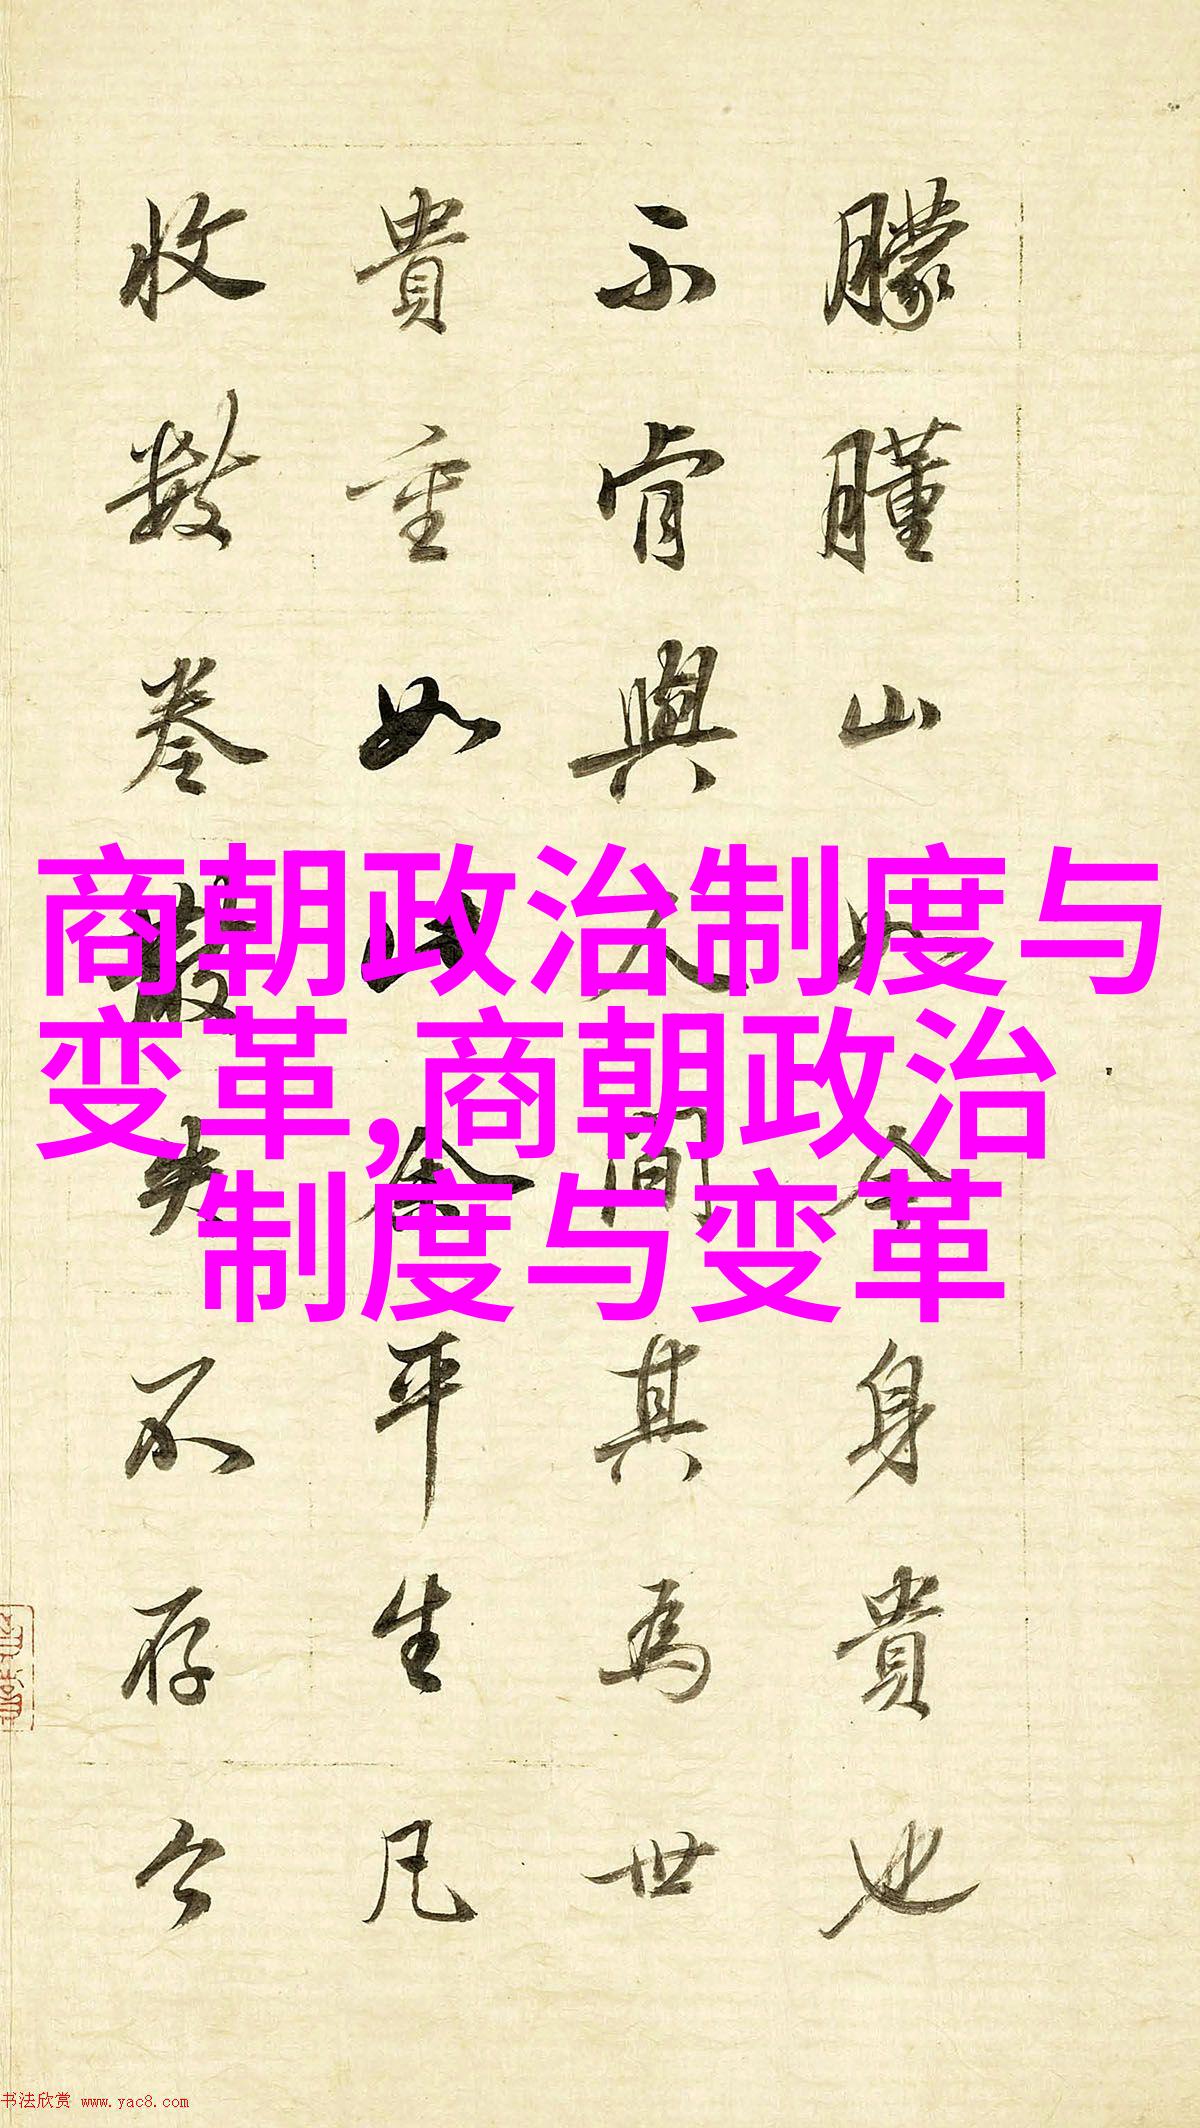 商朝政治制度与
变革,商朝政治
制度与变革
朦山如今身貴也
不肯與人間其為世
貴重如此余平生凡
收數卷失不存今
书法欣赏 www.yac8.com